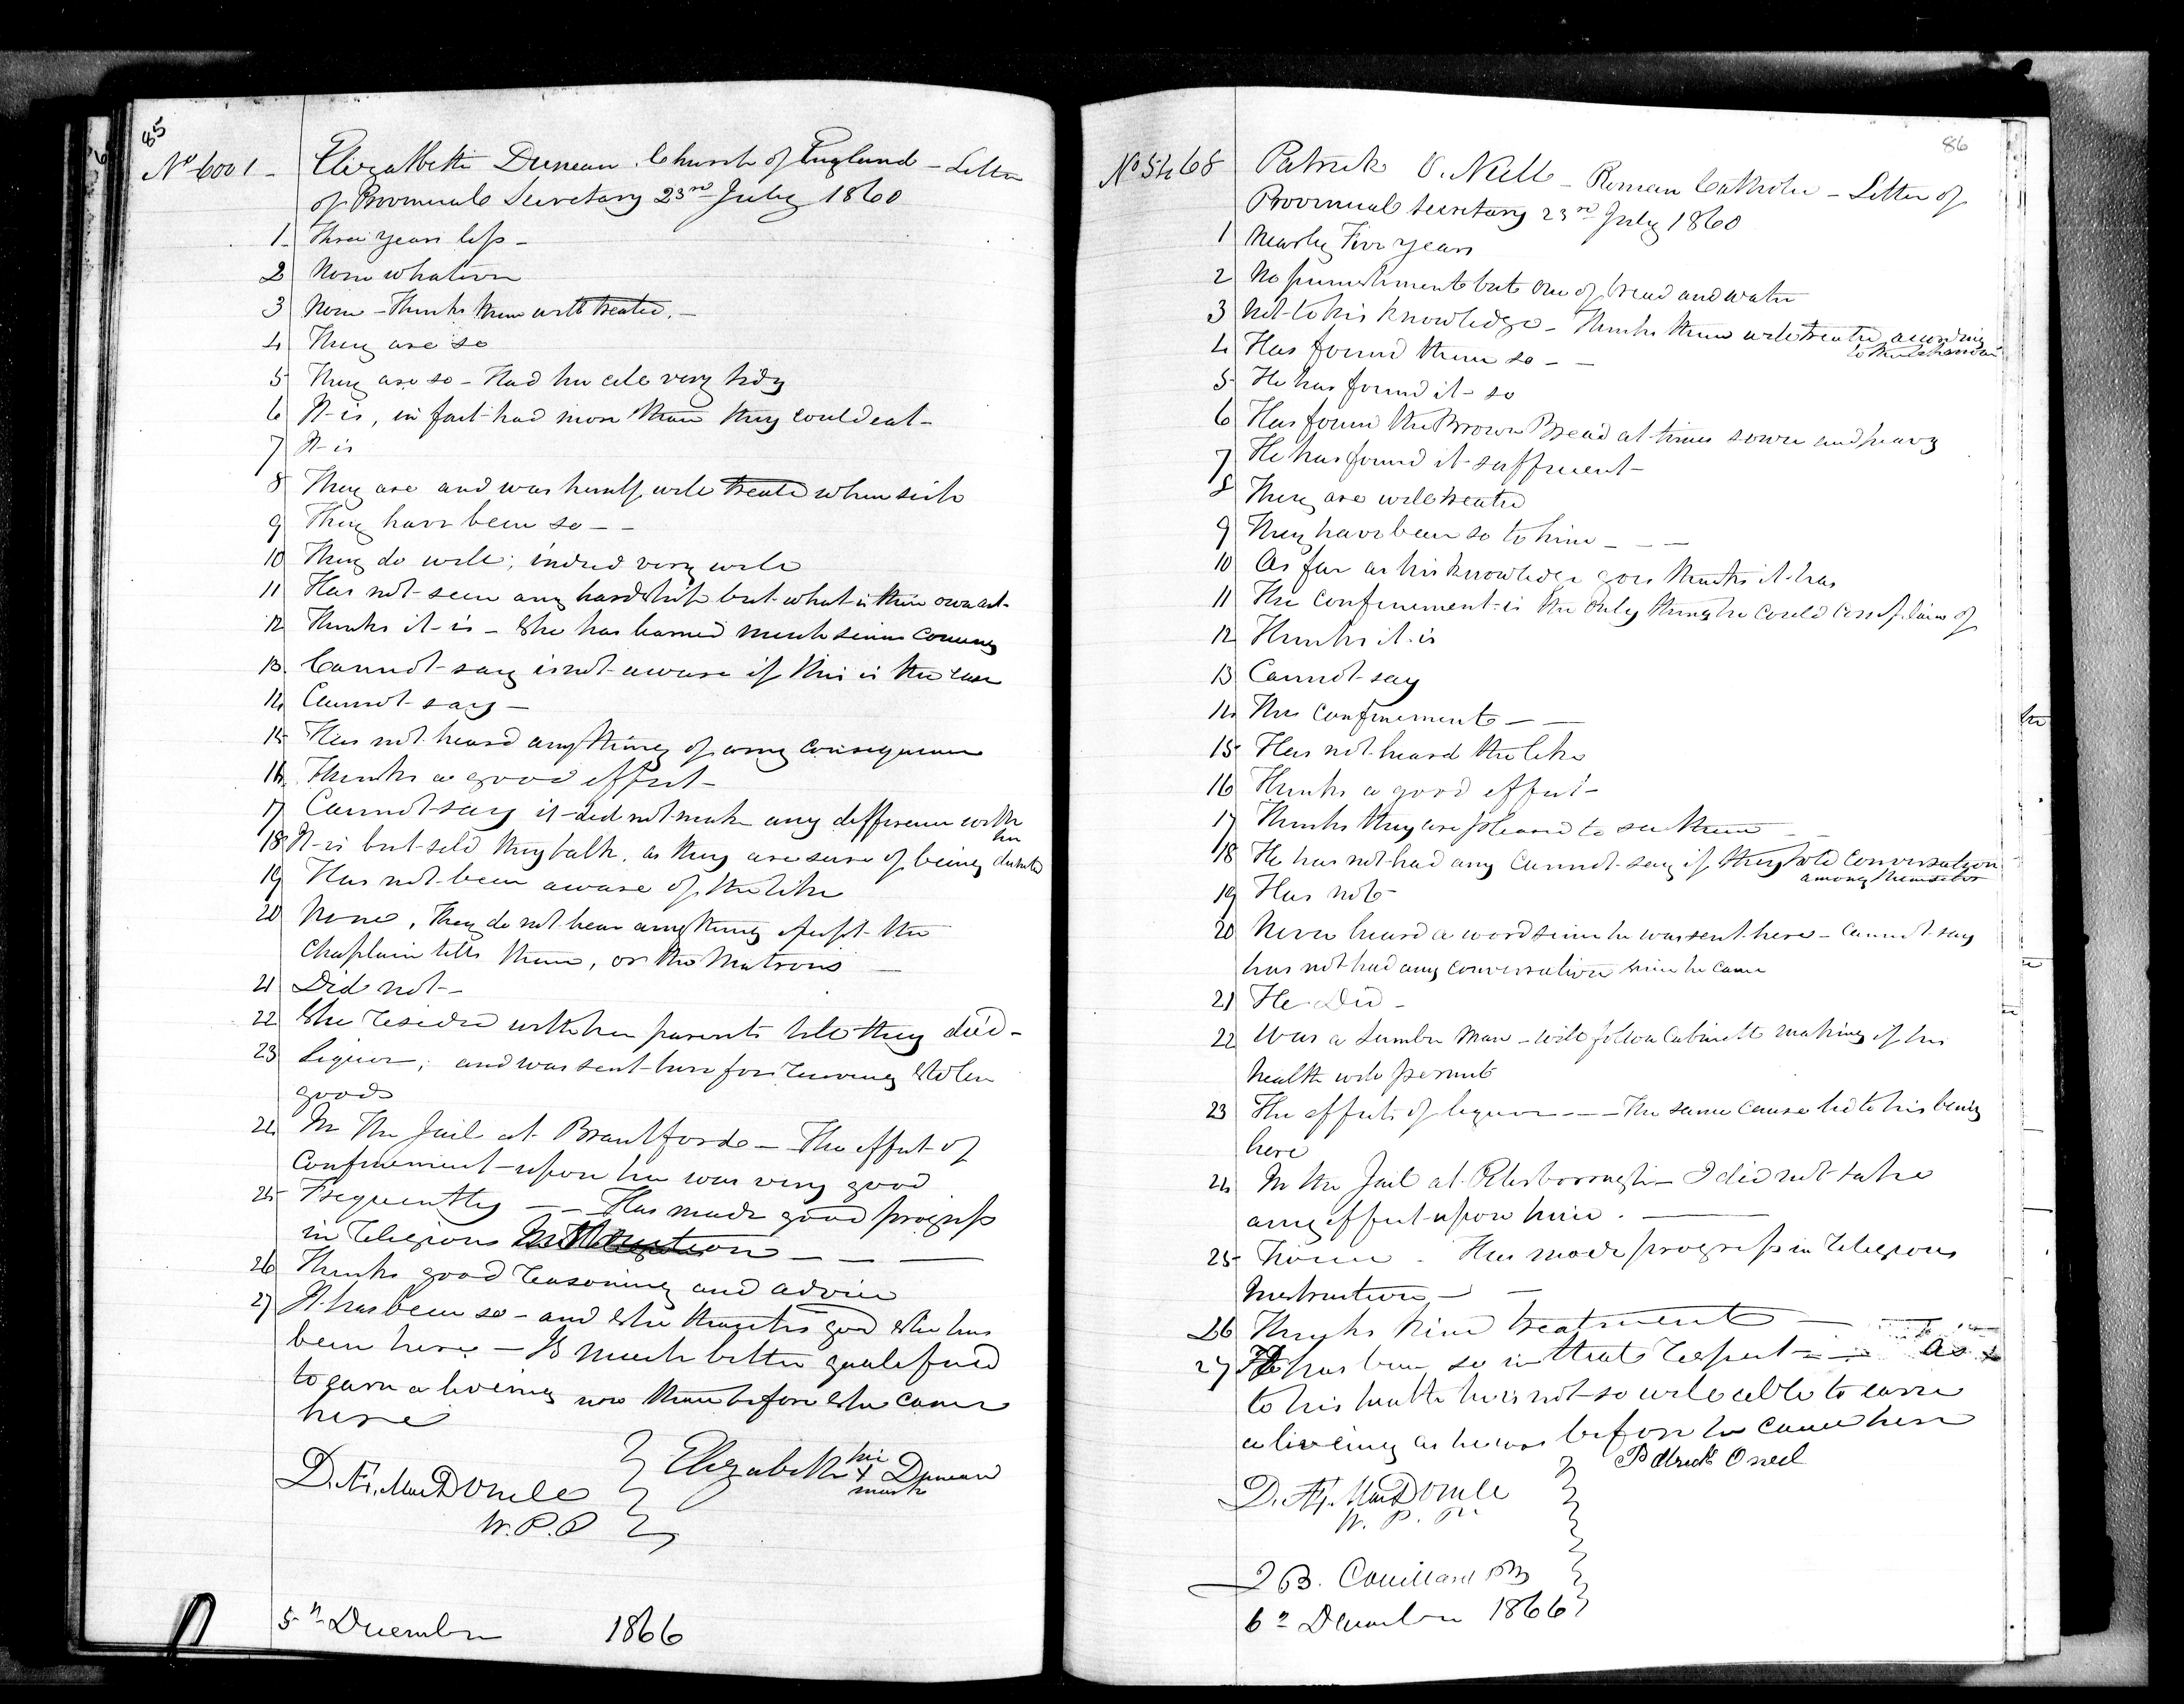 85
No 6001 - Elizabeth Duncan Church of England - Letter
of Provincial Secretary 23rd July 1860
1 Three years less -
2 None whatever
3 None - Thinks them well treated. -
4 They are so
5 They are so - Had her cell very tidy
6 It is, in fact had more than they could eat -
7 It is
8 They are and was herself well treated when sick
9 They have been so - -
10 They do well; indeed very well
11 Has not seen any hardship but what is their own act.
12 Thinks it is - She has learned much since coming
13 Cannot say is not aware if this is the case
14 Cannot say -
15 Has not heard anything of any consequence
16 Thinks a good effect -
17 Cannot say it did not make any difference with
her
18 It is but seld they talk, as they are sure of being
19 Has not been aware of the like
20 None, They do not hear any thing except the
Chaplain tells them, or the Matrons -
21 Did not -
22 She resided with her parents till they died -
23 Liquor; and was sent here for receiving stolen
goods
24 In the Jail at Brantford - The effect of
Confinement upon her was very good
25 Frequently - - Has made good progress
in religious Instruction - - -
26 Thinks good reasoning and advice
27 It has been so - and she thanks god she has
been here - Is much better qualified
to earn a living now than before she came
here
D. Æ. MacDonell
W.P.P
Elizabeth her X mark Duncan
5th December 1866
86
No 5468 Patrick O. Neill - Roman Catholic - Letter of
Provincial Secretary 23rd July 1860
1 Nearly Five years
2 No punishment but one of bread and water
3 Not to his knowledge - Thinks them well treated according
to their behaviour
4 Has found them so - -
5 He has found it so
6 Has found the Brown Bread at times sour and heavy
7 He has found it sufficient -
8 They are well treated
9 They have been so to him - - -
10 As far as his knowledge goes thinks it has
11 The confinement is the only thing he could complain of
12 Thinks it is
13 Cannot say
14 The confinement - -
15 Has not heard the like
16 Thinks a good effect -
17 Thinks they are pleased to see them -
18 He has not had any cannot say if they hold conversation
among themselves
19 Has not -
20 Never heard a word since he was sent here - cannot say
has not had any conversation since he came
21 He Did -
22 Was a Lumber Man - will follow Cabinett making if his
health will permit
23 The effects of liquor - - - The same cause led to his being
here
24 In the Jail at Peterborough - I did not take
any effect upon him. -
25 . Has made progress in religious
Instruction - -
26 Thinks kind treatment -
27 It has been so in that respect - - As
to his health he is not so well able to earn
a liveing as he was before he came here
Patrick Oneil
D. Æ. MacDonell
W. P. P.
B. Couillard
6th December 1866